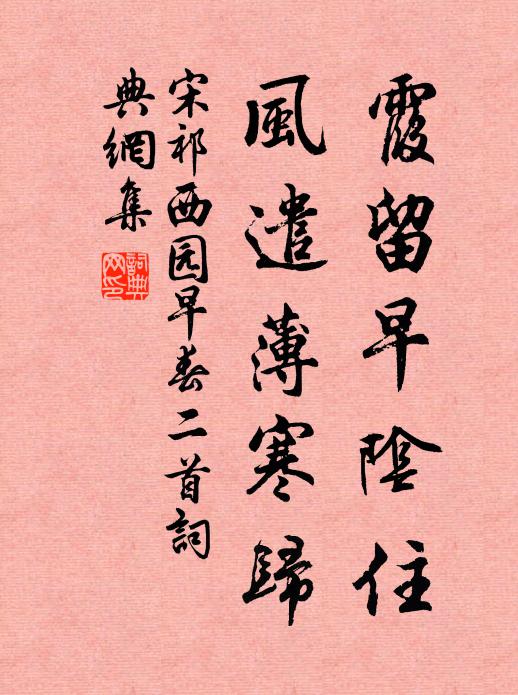 霞留早陰住
風遣薄寒歸
宋祁西园早春二首詞
典網集
詞典網印